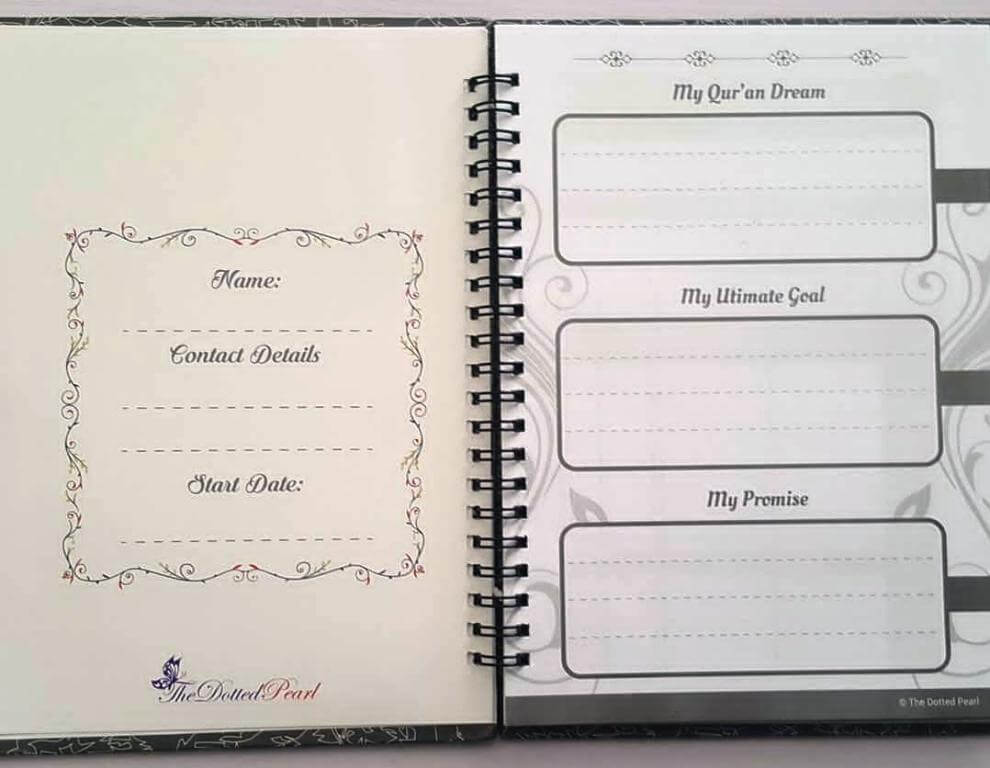 Name:
Contact Details
Start Date:
The Dotted Pearl
My Qur'an Dream
My Utimate Goal
My Promise
© The Dotted Pearl